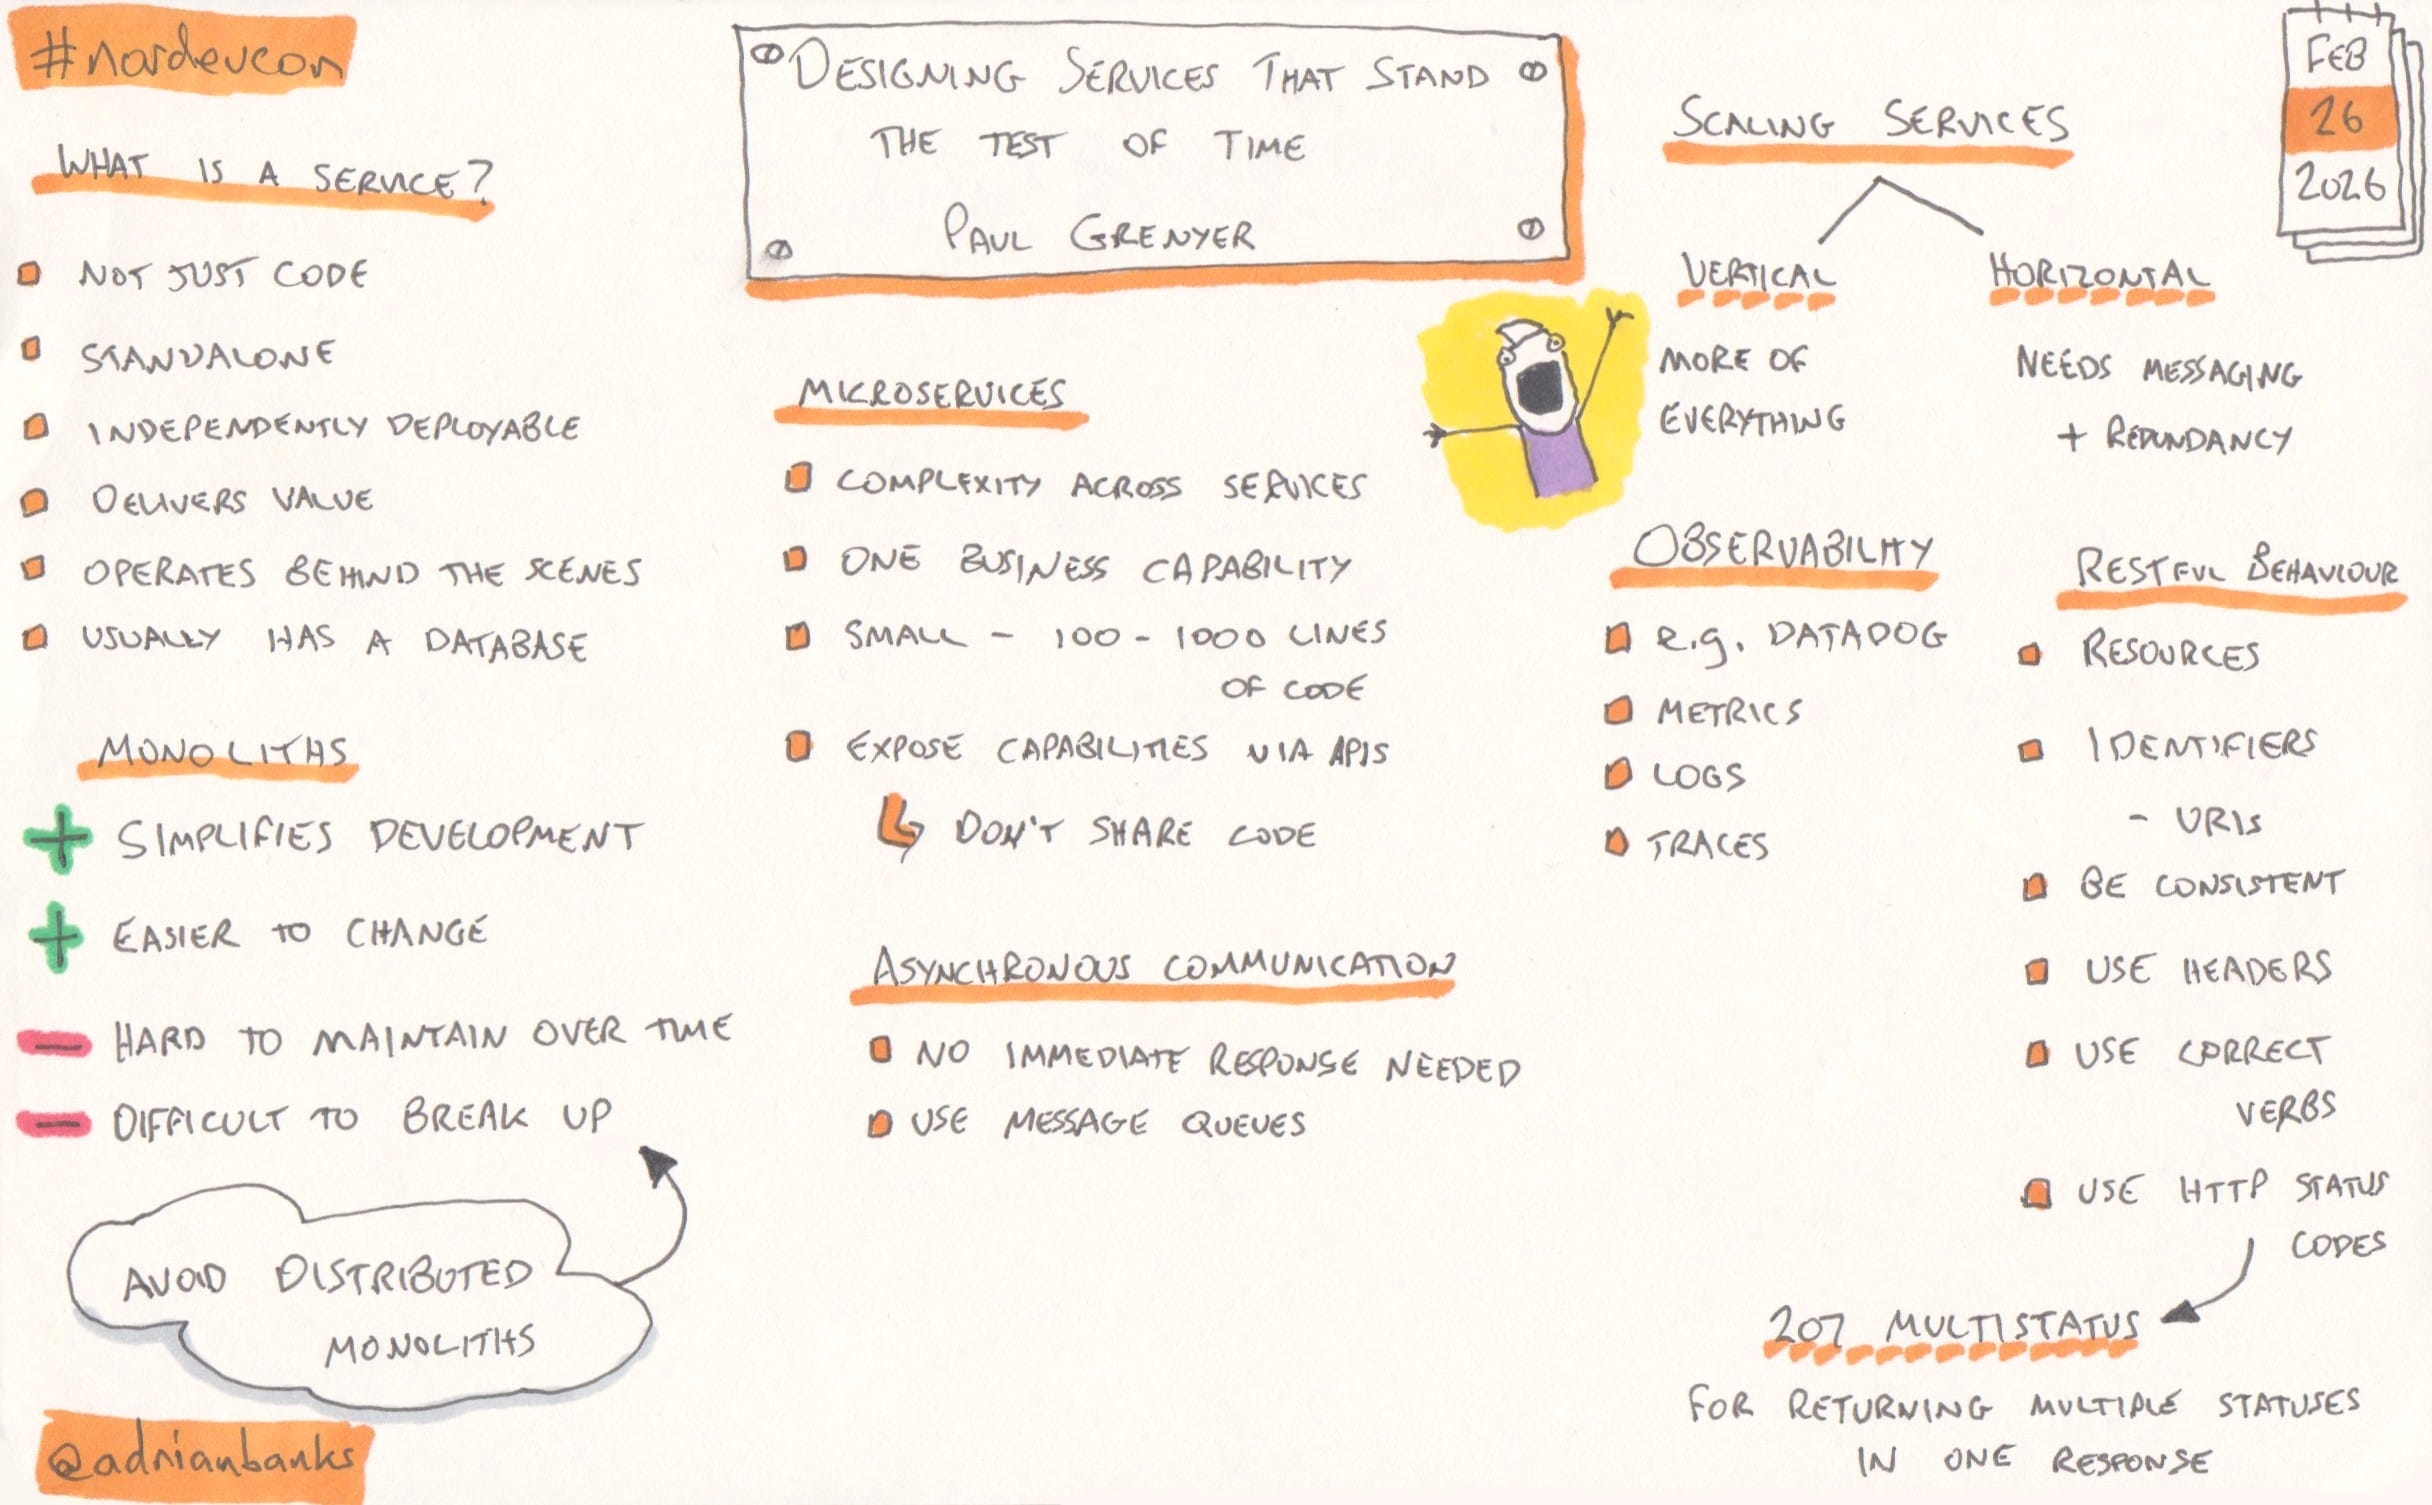 #nordevcon
WHAT IS A SERVICE?
NOT JUST CODE
STANDALONE
INDEPENDENTLY DEPLOYABLE
DELIVERS VALUE
OPERATES BEHIND THE SCENES
USUALLY HAS A DATABASE
MONOLITHS
+ SIMPLIFIES DEVELOPMENT
+ EASIER TO CHANGE
- HARD TO MAINTAIN OVER TIME
- DIFFICULT TO BREAK UP
AVOID DISTRIBUTED
MONOLITHS
@adrianbanks
DESIGNING SERVICES THAT STAND
THE TEST OF TIME
PAUL GRENYER
MICROSERVICES
COMPLEXITY ACROSS SERVICES
ONE BUSINESS CAPABILITY
SMALL - 100 - 1000 LINES
OF CODE
EXPOSE CAPABILITIES VIA APIS
DON'T SHARE CODE
ASYNCHRONOUS COMMUNICATION
NO IMMEDIATE RESPONSE NEEDED
USE MESSAGE QUEUES
SCALING SERVICES
VERTICAL
MORE OF
EVERYTHING
HORIZONTAL
NEEDS MESSAGING
+ REDUNDANCY
FEB
26
2026
OBSERVABILITY
e.g. DATADOG
METRICS
LOGS
TRACES
RESTFUL BEHAVIOUR
RESOURCES
IDENTIFIERS
- URIs
BE CONSISTENT
USE HEADERS
USE CORRECT
VERBS
USE HTTP STATUS
CODES
207 MULTISTATUS
FOR RETURNING MULTIPLE STATUSES
IN ONE RESPONSE